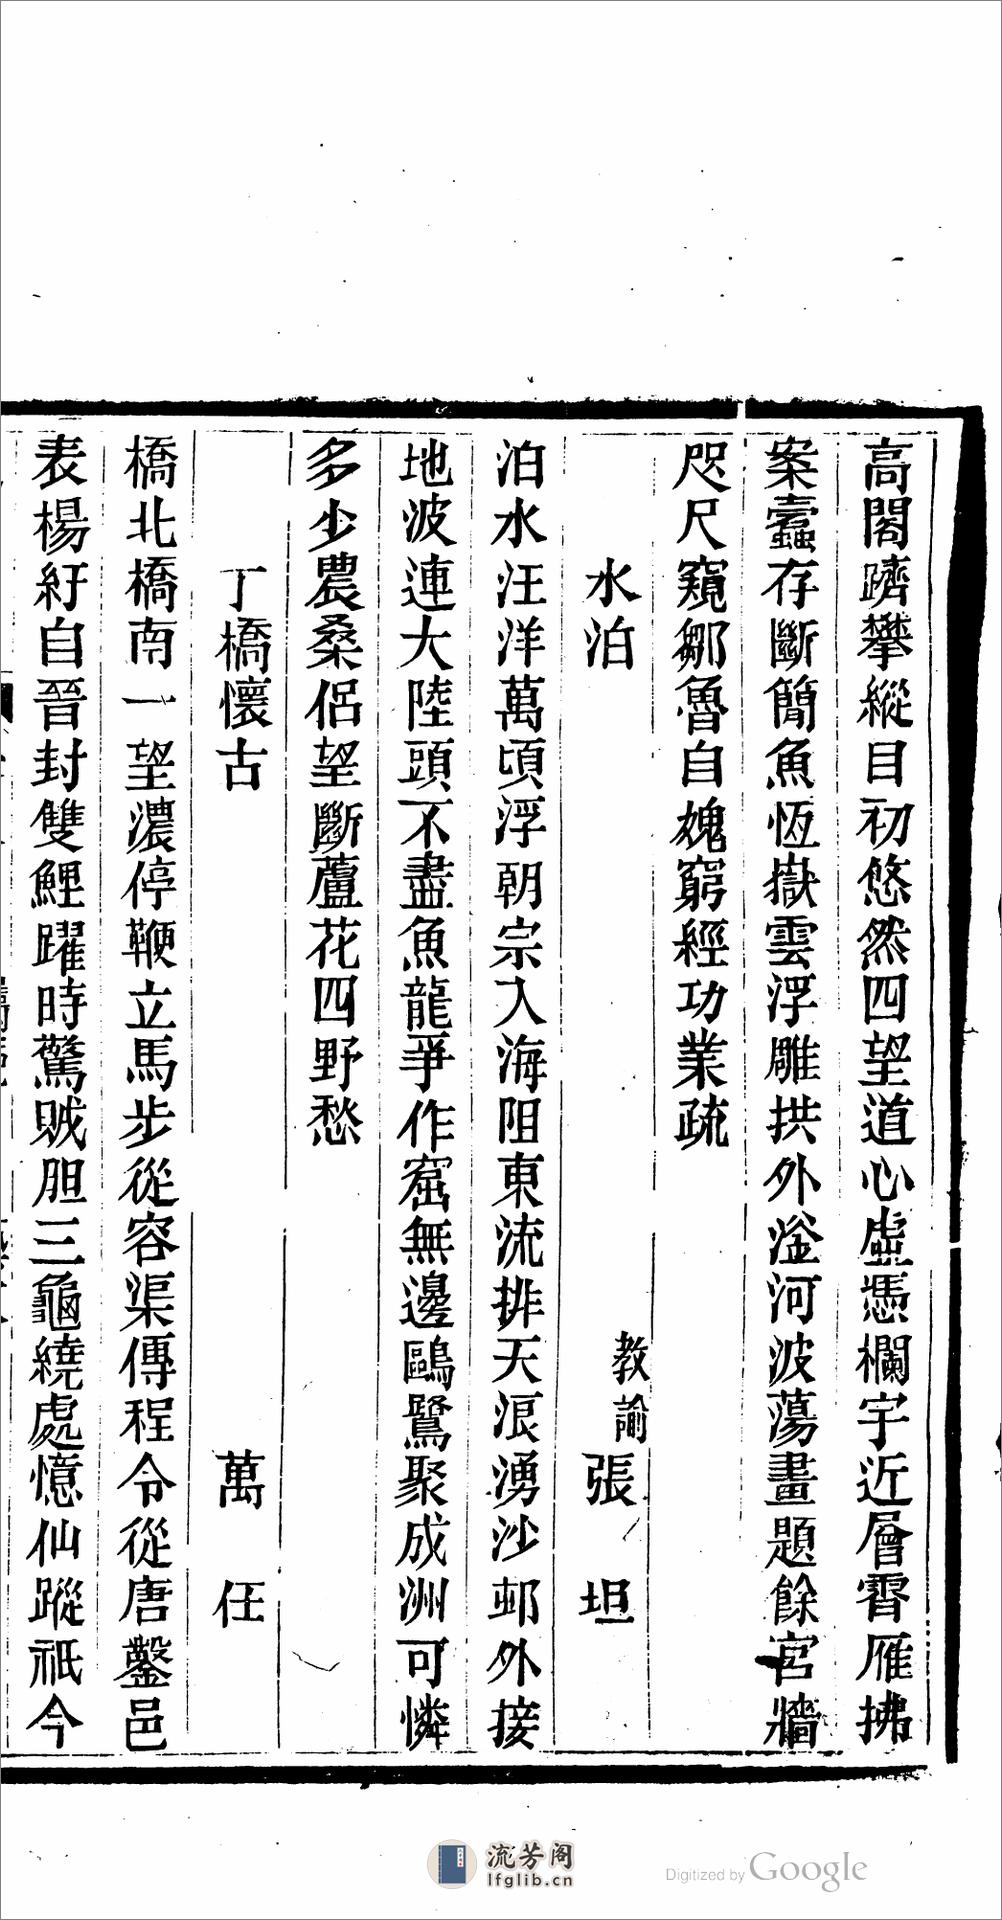 高閣躋攀縱目初悠然四望道心虛憑欄宇近層霄雁拂
案蠹存斷簡魚恆嶽雲浮雕拱外滏河波蕩畫題餘宮牆
咫尺窺鄒魯自媿窮經功業疏
水泊 教諭張坦
泊水汪洋萬頃浮朝宗入海阻東流排天浪湧沙邨外接
地波連大陸頭不盡魚龍爭作窟無邊鷗鷺聚成洲可憐
多少農桑侶望斷蘆花四野愁
丁橋懷古 萬任
橋北橋南一望濃停鞭立馬步從容渠傳程令從唐鑿邑
表楊紆自晉封雙鯉躍時驚賊胆三龜繞處憶仙蹤祇今
流芳阁
lfglib.cn
Digitized by Google